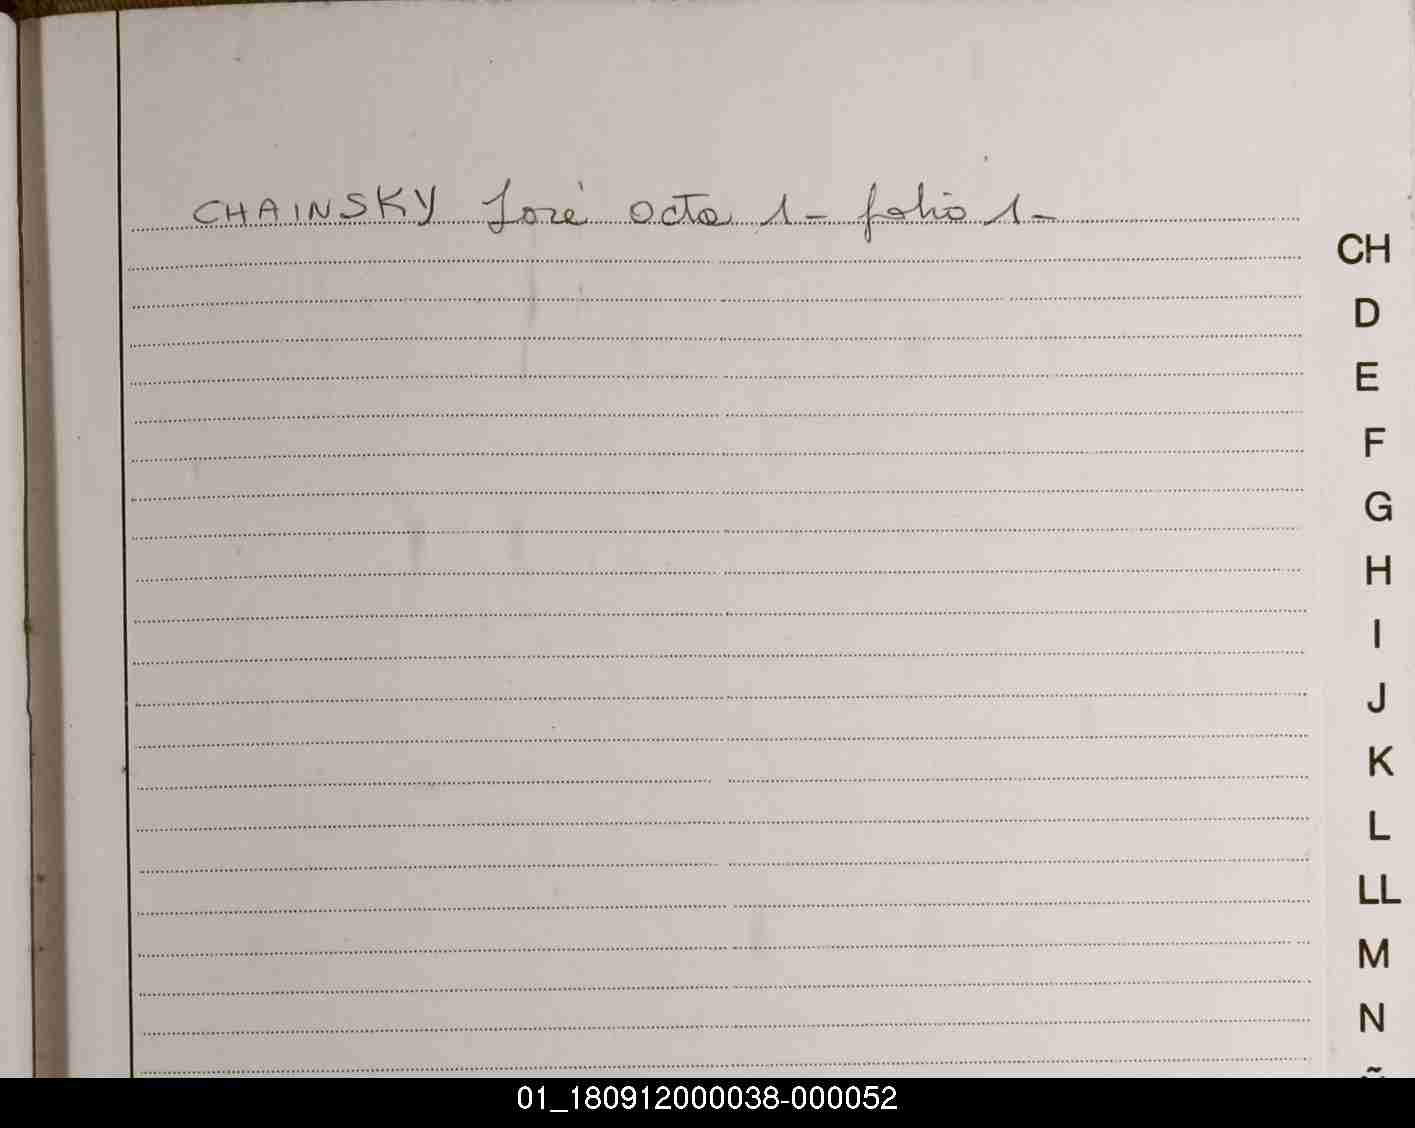 CHAINSKY José Octa 1- folio 1-
CH
D
E
F
G
H
I
J
K
L
LL
M
N
01_180912000038-000052